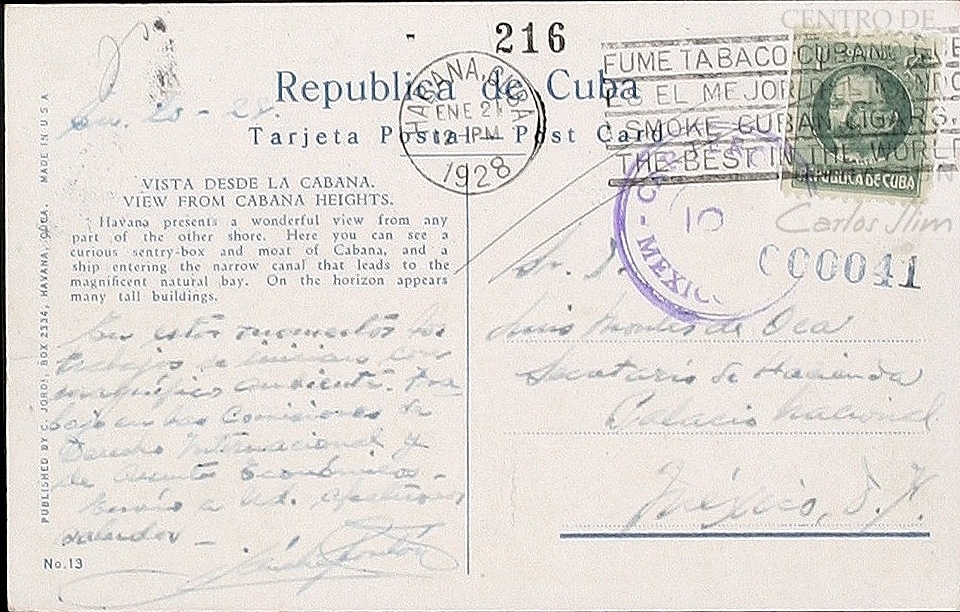 216
CENTRO DE
Republica de Cuba
Tarjeta Postal - Post Card
HABANA, CUBA
ENE 21
12-1PM
1928
FUME TABACO CUBANO
ES EL MEJOR DEL MUNDO
SMOKE CUBAN CIGARS,
THE BEST IN THE WORLD
REPUBLICA DE CUBA
En. 20-28.
VISTA DESDE LA CABANA.
VIEW FROM CABANA HEIGHTS.
Havana presents a wonderful view from any
part of the other shore. Here you can see a
curious sentry-box and moat of Cabana, and a
ship entering the narrow canal that leads to the
magnificent natural bay. On the horizon appears
many tall buildings.
En estos momentos los
trabajos se inician con
magnífico ambiente. Tra-
bajo en las Comisiones de
Derecho Internacional y
de Asuntos Económicos.
Envío a Ud. afectuosos
saludos -
No.13
PUBLISHED BY C. JORDI, BOX 2334, HAVANA, CUBA. MADE IN U S A
10
MEXICO
Carlos Slim
000041
Sr. D.
Luis Montes de Oca
Secretario de Hacienda
Palacio Nacional
México, D. F.